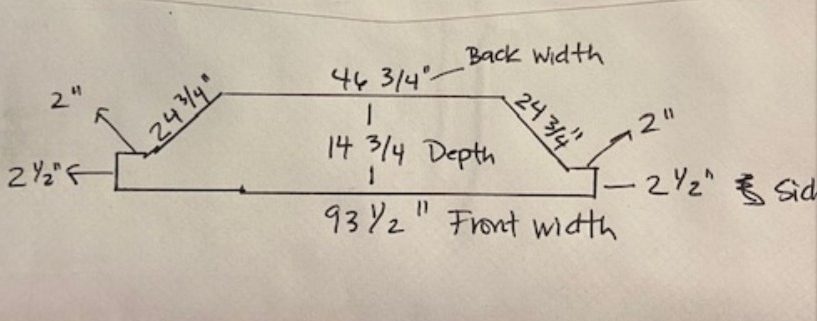 Back Width
46 3/4"
2"
24 3/4"
24 3/4"
2"
14 3/4 Depth
2 1/2"
2 1/2"
93 1/2" Front width